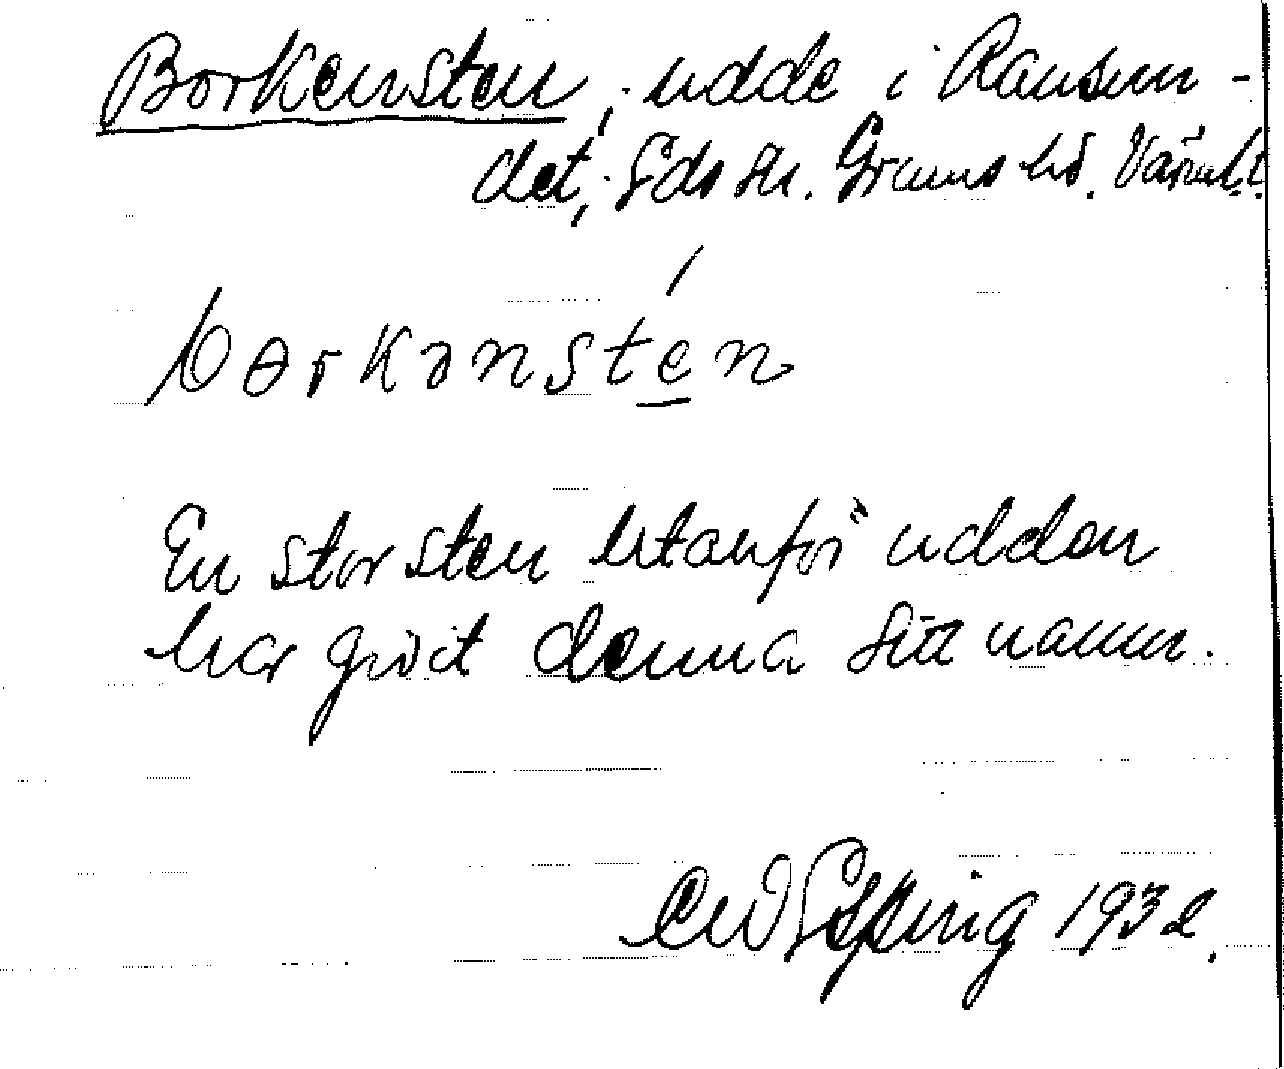 Borkensten, udde i Ransun-
det, Eds sn. Grums hd. Värml.
En stor sten utanför udden
har givit denna sitt namn.
1932.